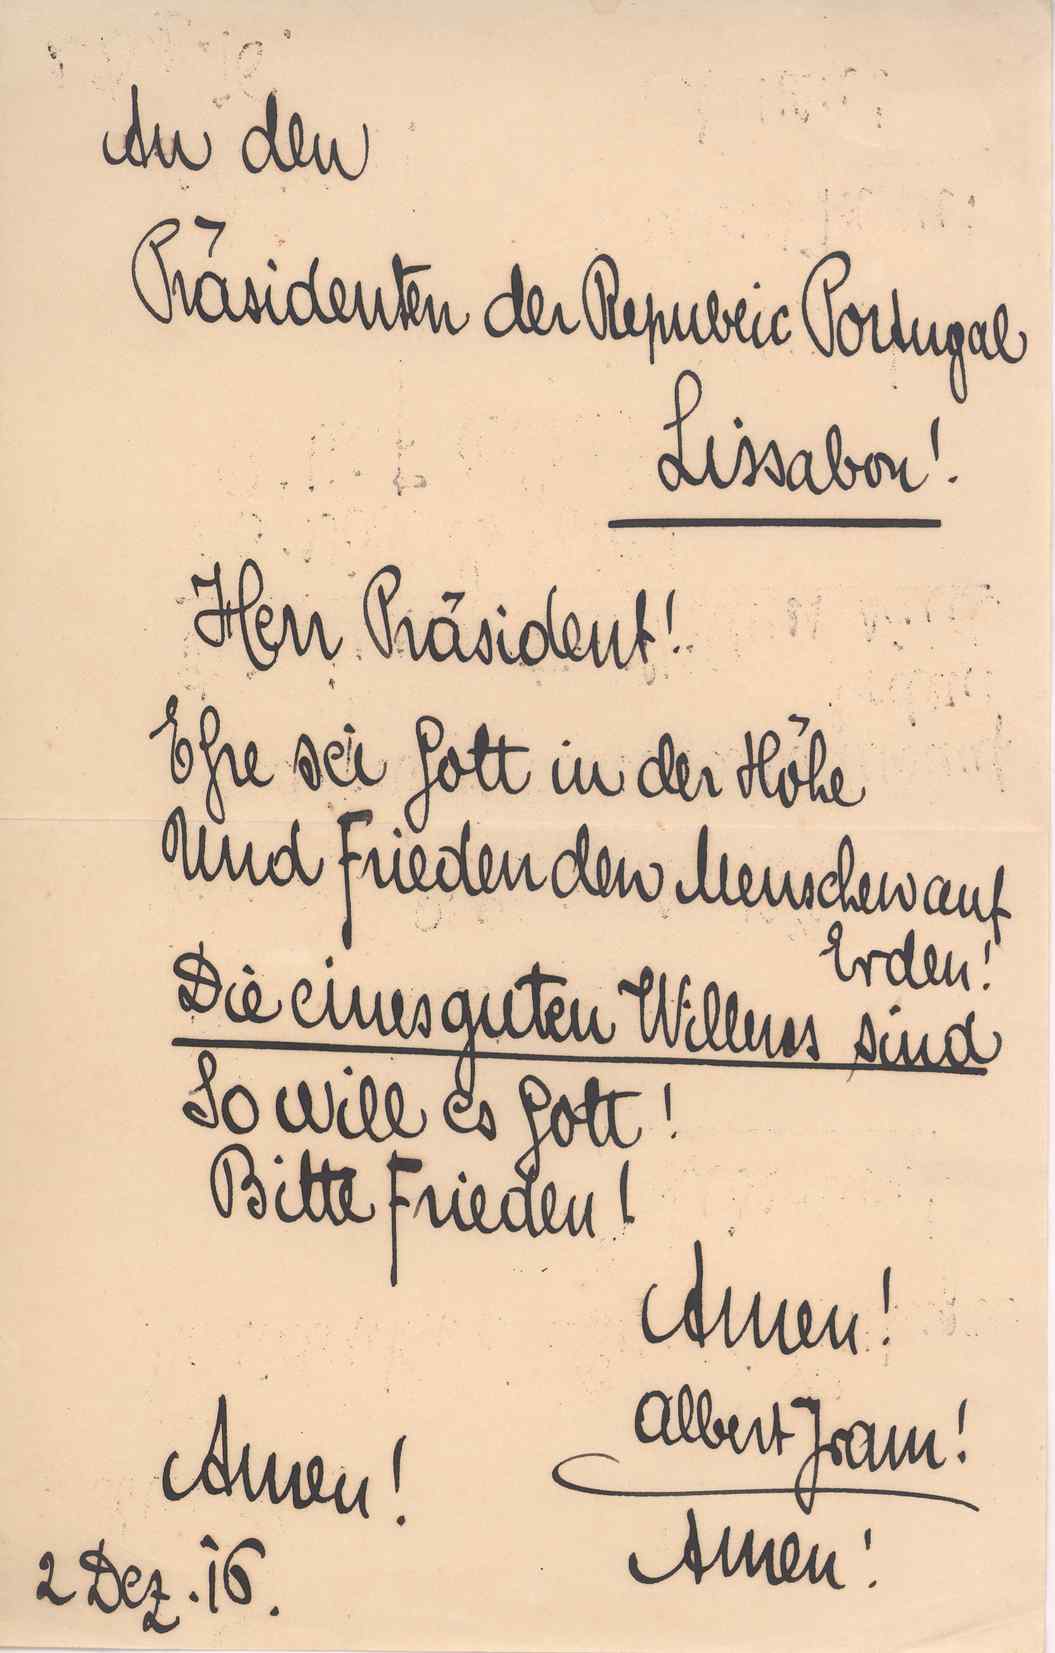 An den
Präsidenten der Republic Portugal
Lissabon!
Herr Präsident!
Ehre sei Gott in der Höhe
Und Frieden den Menschen auf
Erden!
Die eines guten Willens sind
So will es Gott!
Bitte Frieden!
Amen!
Albert Jram!
Amen!
Amen!
2 Dez. 16.